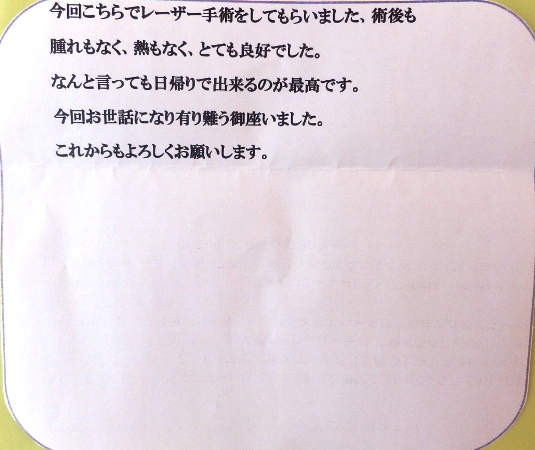 今回こちらでレーザー手術をしてもらいました、術後も
腫れもなく、熱もなく、とても良好でした。
なんと言っても日帰りで出来るのが最高です。
今回お世話になり有り難う御座いました。
これからもよろしくお願いします。